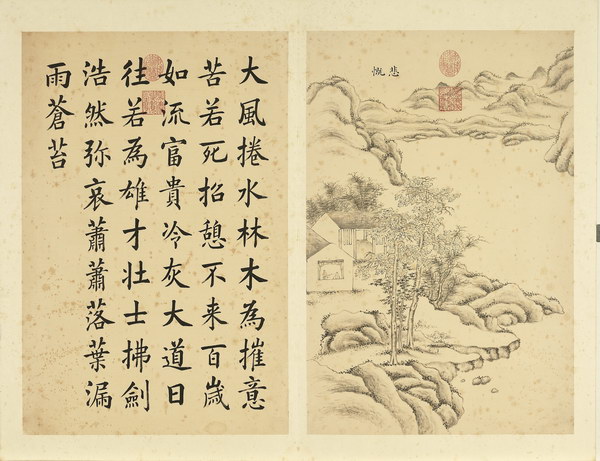 悲慨
大風捲水林木為摧意
苦若死招憩不来百歲
如流富貴冷灰大道日
往若為雄才壯士拂劍
浩然弥哀蕭蕭落葉漏
雨蒼苔